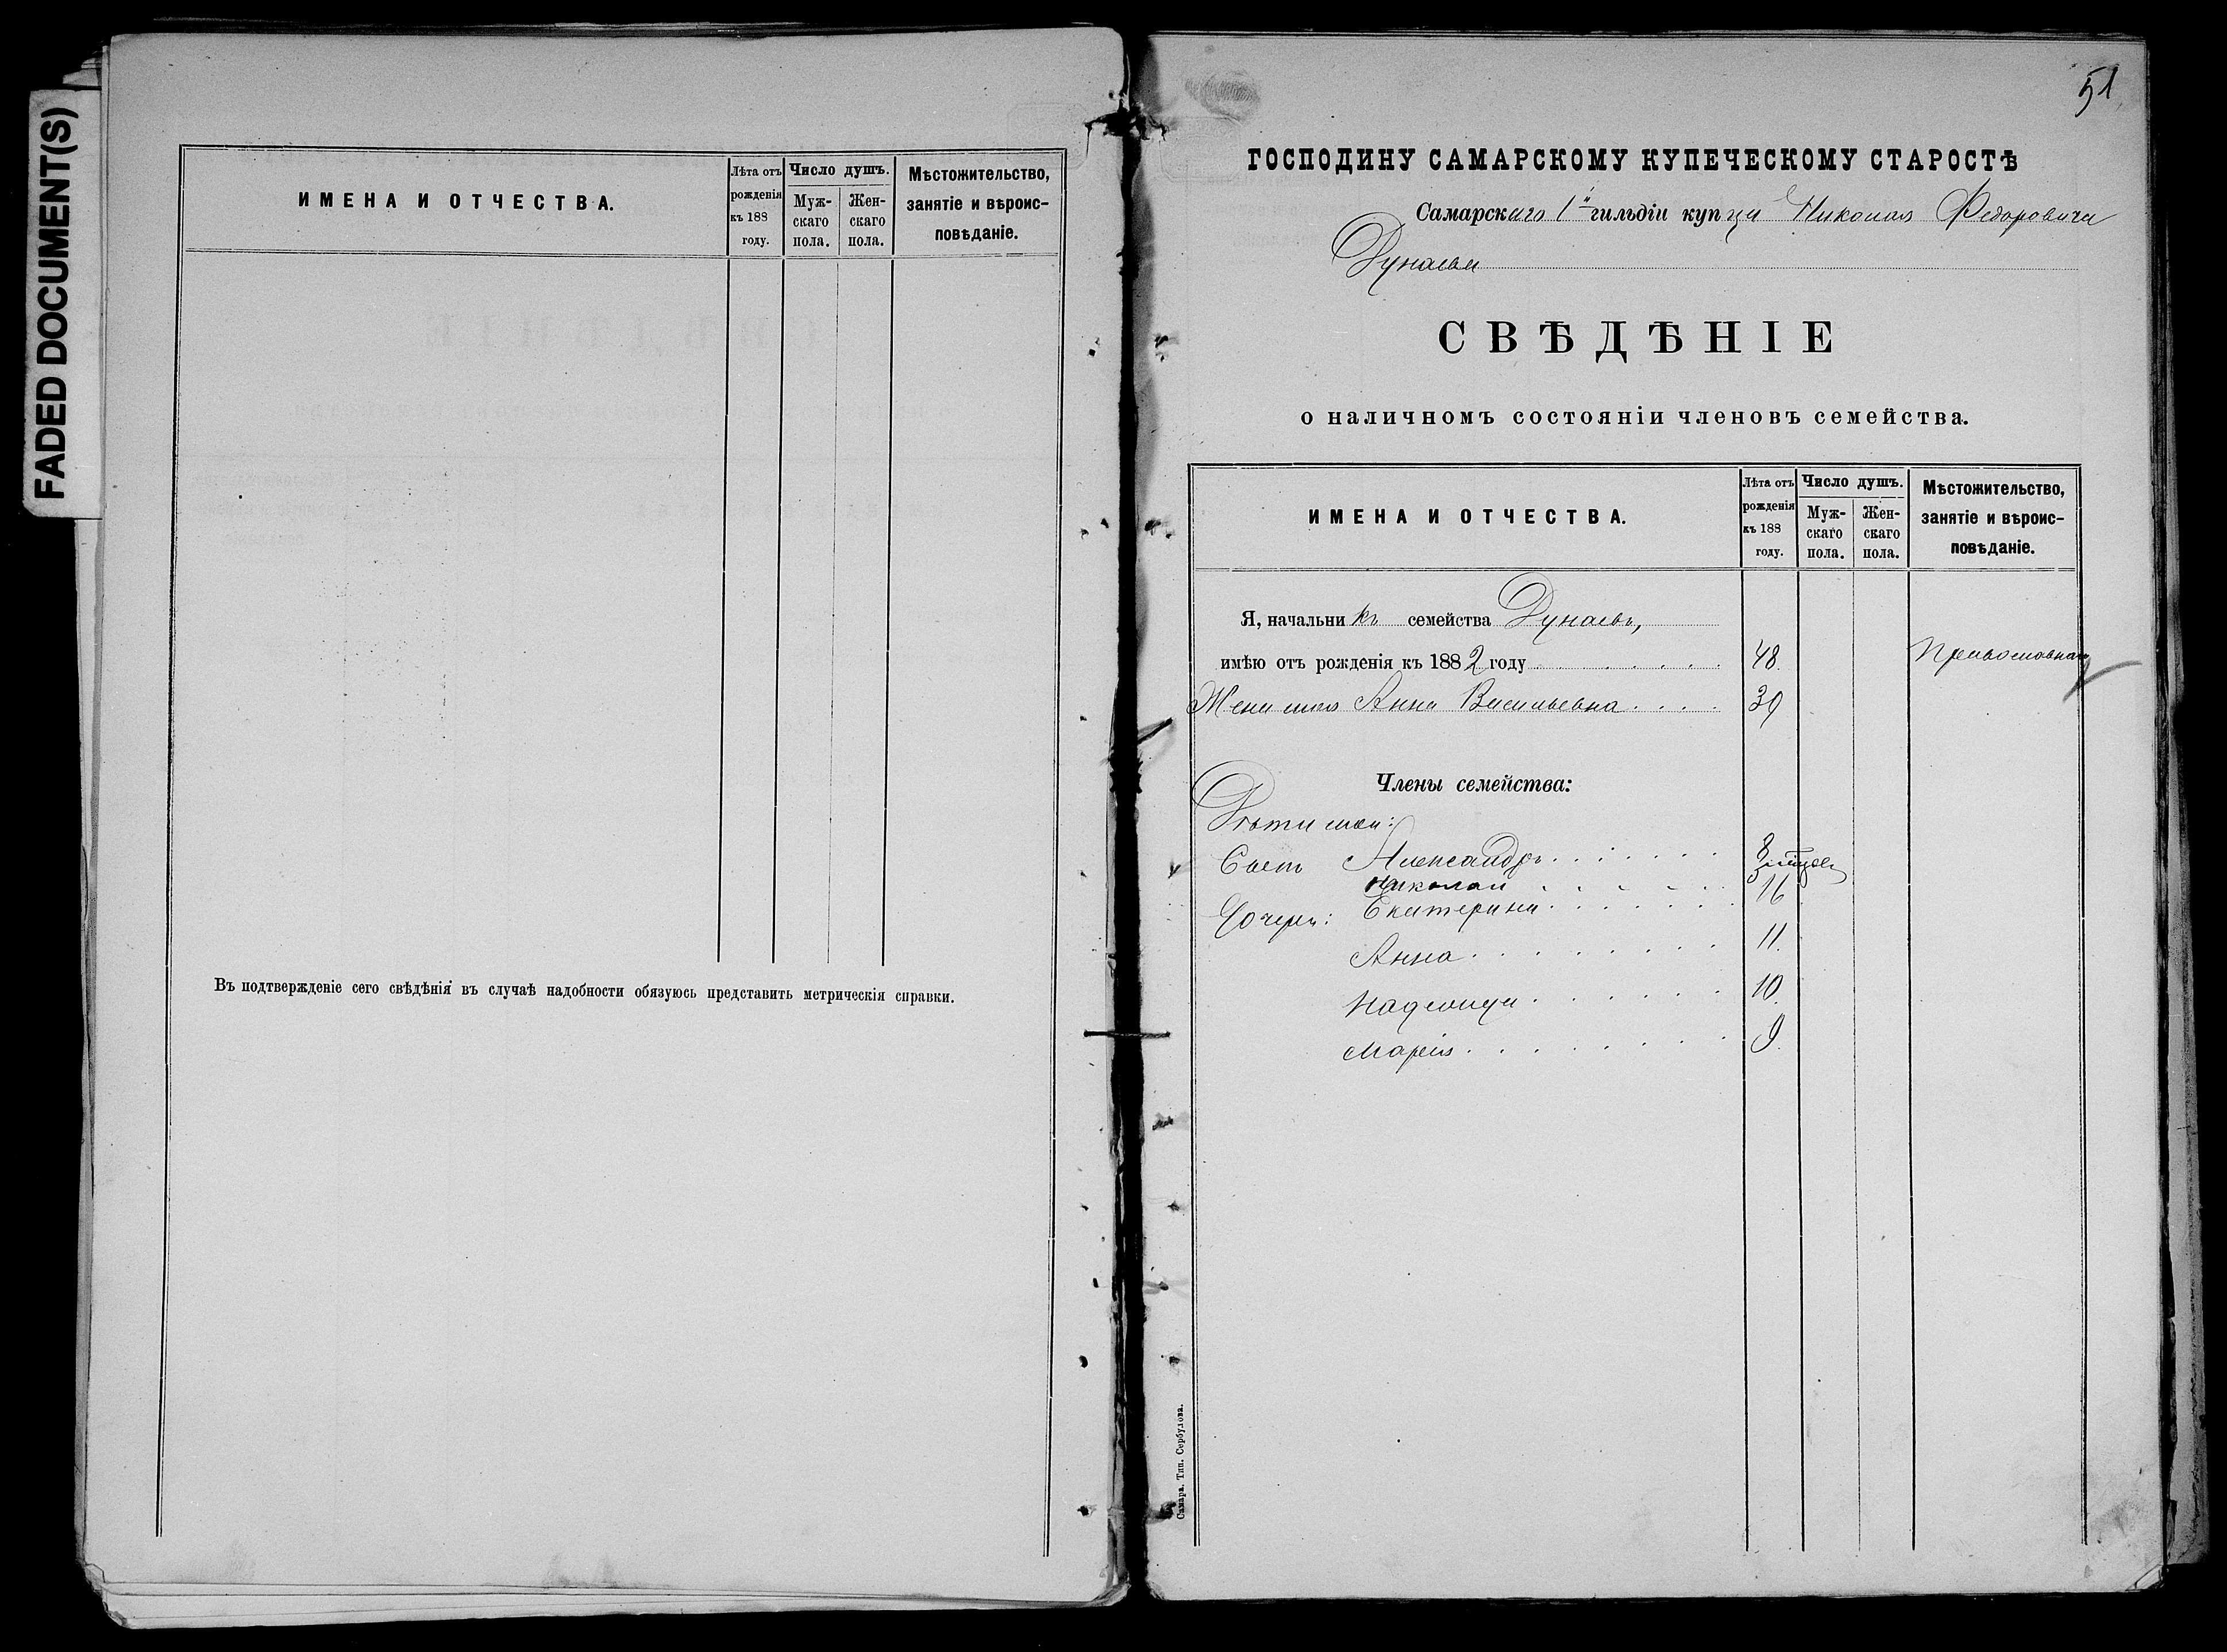 FADED DOCUMENT(S)
ИМЕНА И ОТЧЕСТВА.
Лѣта отъ рожденія къ 188 году.
Число душъ.
Мужскаго пола.
Женскаго пола.
Мѣстожительство, занятіе и вѣроисповѣданіе.
Въ подтвержденіе сего свѣдѣнія въ случаѣ надобности обязуюсь представить метрическія справки.
51
ГОСПОДИНУ САМАРСКОМУ КУПЕЧЕСКОМУ СТАРОСТѢ
Самарскаго 1й гильдіи купца Николая Федоровича
Дунаева
СВѢДѢНІЕ
о наличномъ состояніи членовъ семейства.
ИМЕНА И ОТЧЕСТВА.
Лѣта отъ рожденія къ 188 году.
Число душъ.
Мужскаго пола.
Женскаго пола.
Мѣстожительство, занятіе и вѣроисповѣданіе.
Я, начальникъ семейства Дунаевъ,
имѣю отъ рожденія къ 1882 году 48.
Жена моя Анна Васильевна 39
Члены семейства:
Дѣти мои:
Александръ 8
Николай
Дочери: Екатерина 16
Анна 11.
Надежда 10.
Марія 9.
Самара. Тип. Сербулова.